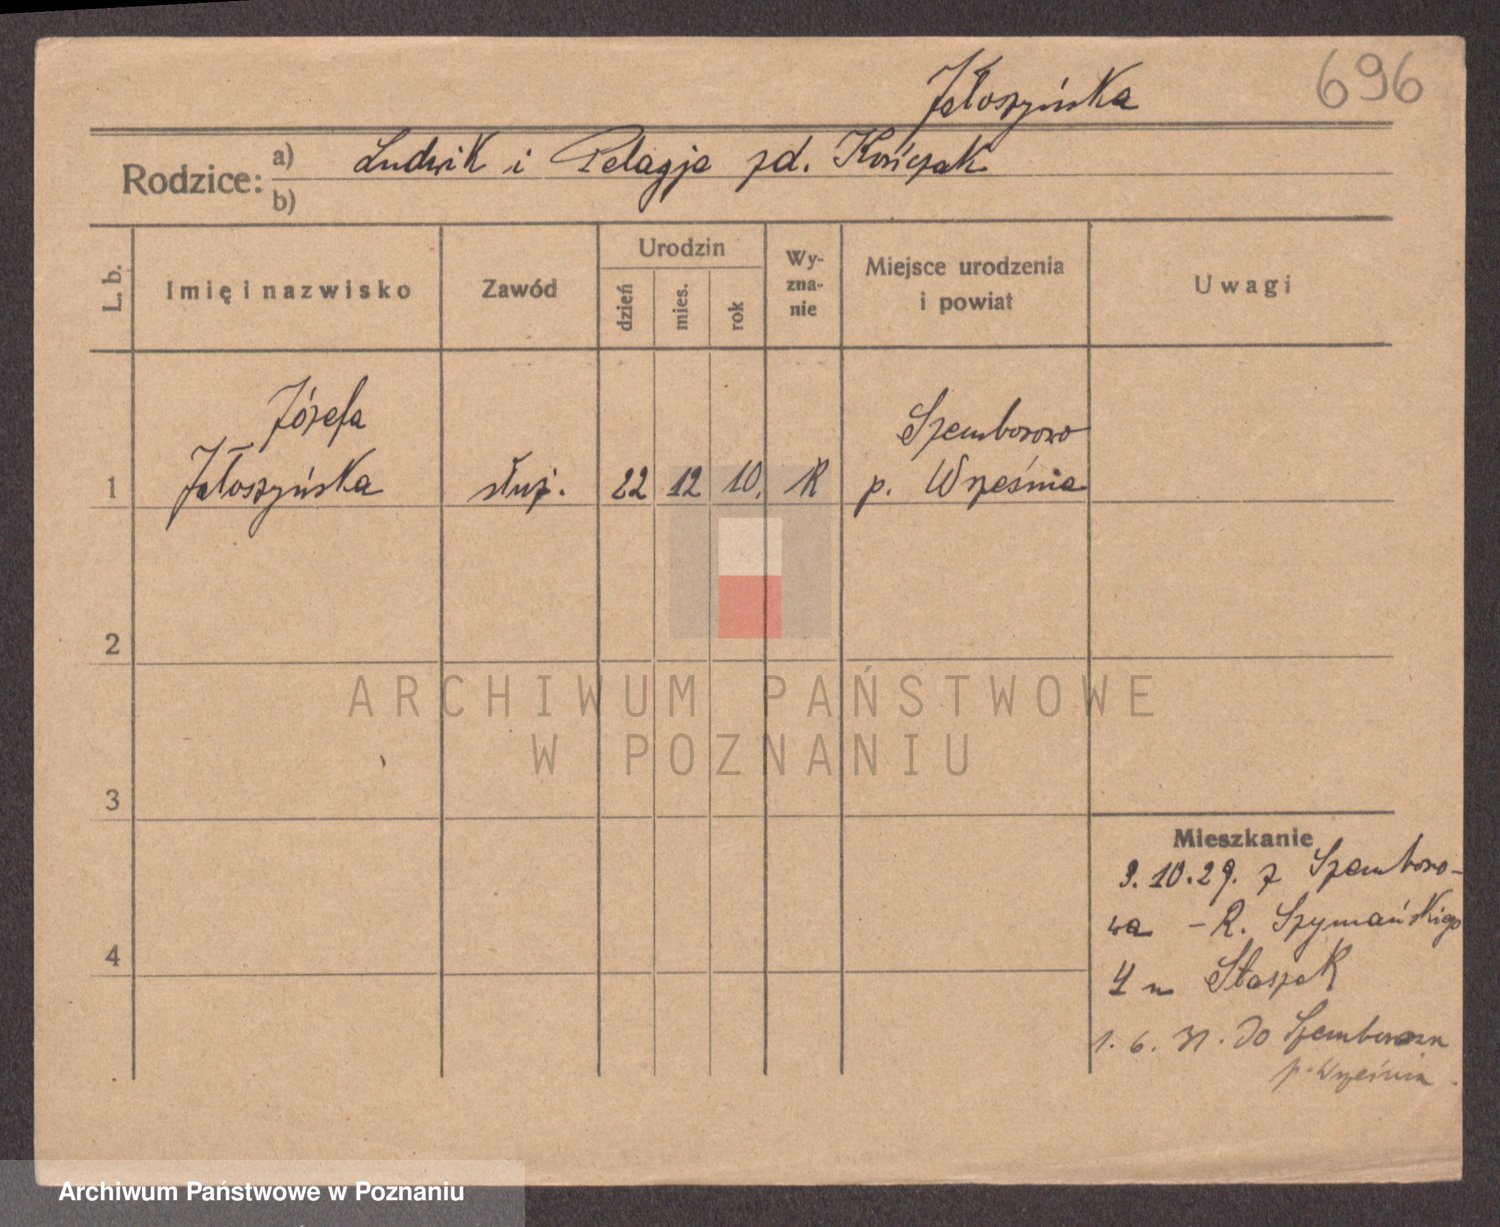 696
Jałoszyńska
Rodzice: a) Ludwik i Pelagja zd. Kończak
b)
L. b.
Imię i nazwisko
Zawód
Urodzin
dzień
mies.
rok
Wy-
zna-
nie
Miejsce urodzenia
i powiat
Uwagi
Józefa
Szemborowo
1 Jałoszyńska służ. 22 12 10. R p. Września
2
3
4
Mieszkanie
9.10.29. z Szemboro-
wa – R. Szymańskiego
4 m Staszak
1. 6. 31. do Szemborowa
p. Września
ARCHIWUM PAŃSTWOWE
W POZNANIU
Archiwum Państwowe w Poznaniu